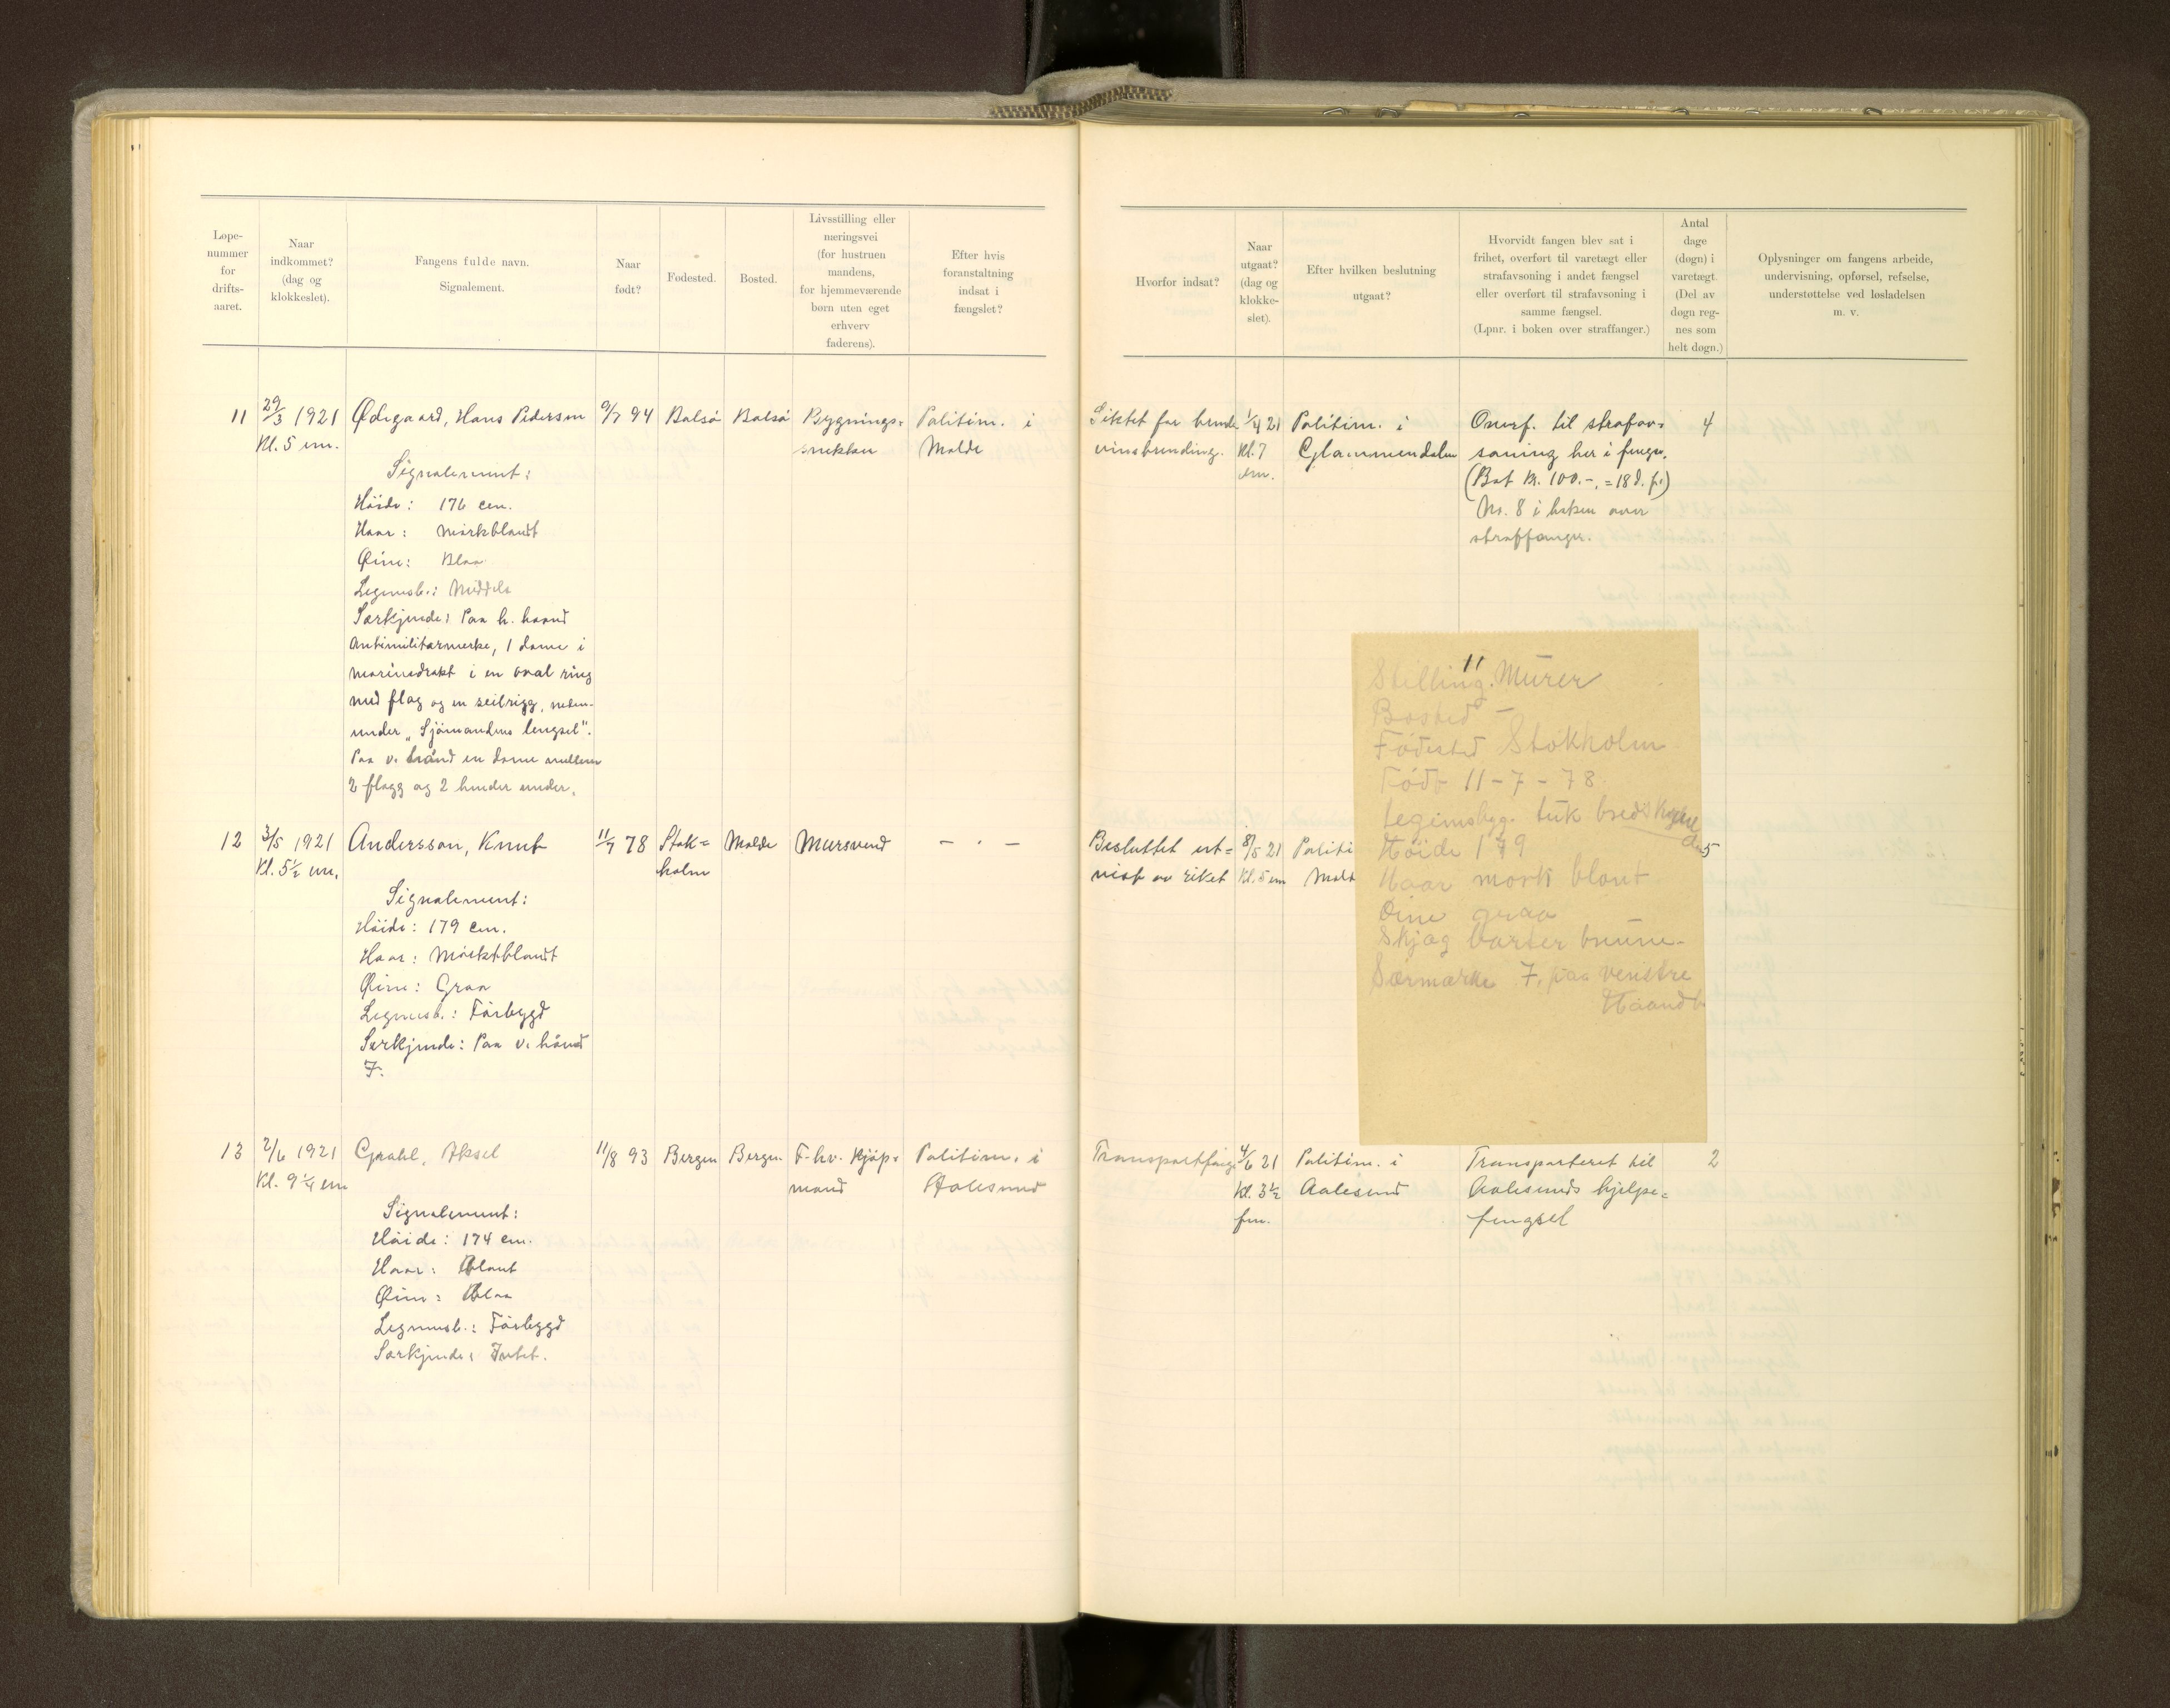 Løpe-
nummer
for
drifts-
aaret.
Naar
indkommet?
(dag og
klokkeslet).
Fangens fulde navn.
Signalement.
Naar
født?
Fødested.
Bosted.
Livsstilling eller
næringsvei
(for hustruen
mandens,
for hjemmeværende
børn uten eget
erhverv
faderens).
Efter hvis
foranstaltning
indsat i
fængslet?
Hvorfor indsat?
Naar
utgaat?
(dag og
klokke-
slet).
Efter hvilken beslutning
utgaat?
Hvorvidt fangen blev sat i
frihet, overført til varetægt eller
strafavsoning i andet fængsel
eller overført til strafavsoning i
samme fængsel.
(Lpnr. i boken over straffanger.)
Antal
dage
(døgn) i
varetægt.
(Del av
døgn reg-
nes som
helt døgn.)
Oplysninger om fangens arbeide,
undervisning, opførsel, refselse,
understøttelse ved løsladelsen
m. v.
11
29/3 1921
Kl. 5 em.
Ødegaard, Hans Pedersen
9/7 94
Bolsö
Bolsö
Bygnings-
snekker
Politim. i
Molde
Siktet for brende-
vinsbrending.
1/4 21
Kl. 7
em.
Politim. i
Glammendalen
Overf. til strafav-
soning her i fengs.
(Bot kr. 100.-, = 18 d. f.)
No. 8 i boken over
straffanger.
4
Signalement:
Höide: 176 cm.
Haar: Mörkblandt
Øine: Blaa
Legemsb.: Middels
Særkjende: Paa h. haand
Antimilitærmerke, 1 dame i
marinedrakt i en oval ring
med flag og en seilrigg, neden-
under "Sjömandens lengsel".
Paa v. hånd en dame mellem
2 flagg og 2 hender under.
12
3/5 1921
Kl. 5½ em.
Andersson, Knut
11/7 78
Stok-
holm
Molde
Mursvend
- . -
Besluttet ut-
vist av riket
8/5 21
Kl. 5 em
Politi
Mold
5
Signalement:
Höide: 179 cm.
Haar: Mörktblandt
Øine: Graa
Legemsb.: Førbygd
Særkjende: Paa v. hånd
7.
11
Stilling. Murer
Bosted -
Fødested Stokholm
Født 11-7-78
Legemsbyg. tuk bred
Höide 179
Haar mörk blont
Öine graa
Skjæg barter brune-
Særmærke 7. paa venstre
Haandb.
13
2/6 1921
Kl. 9¼ em
Grahl, Aksel
11/8 93
Bergen
Bergen
F. hv. Kjöp-
mand
Politim. i
Aalesund
Transportfange
4/6 21
Kl. 3½
fm.
Politim. i
Aalesund
Transporteret til
Aalesunds hjelpe-
fengsel
2
Signalement:
Höide: 174 cm.
Haar: Blont
Øine: Blaa
Legemsb.: Førbygd
Særkjende: Intet.